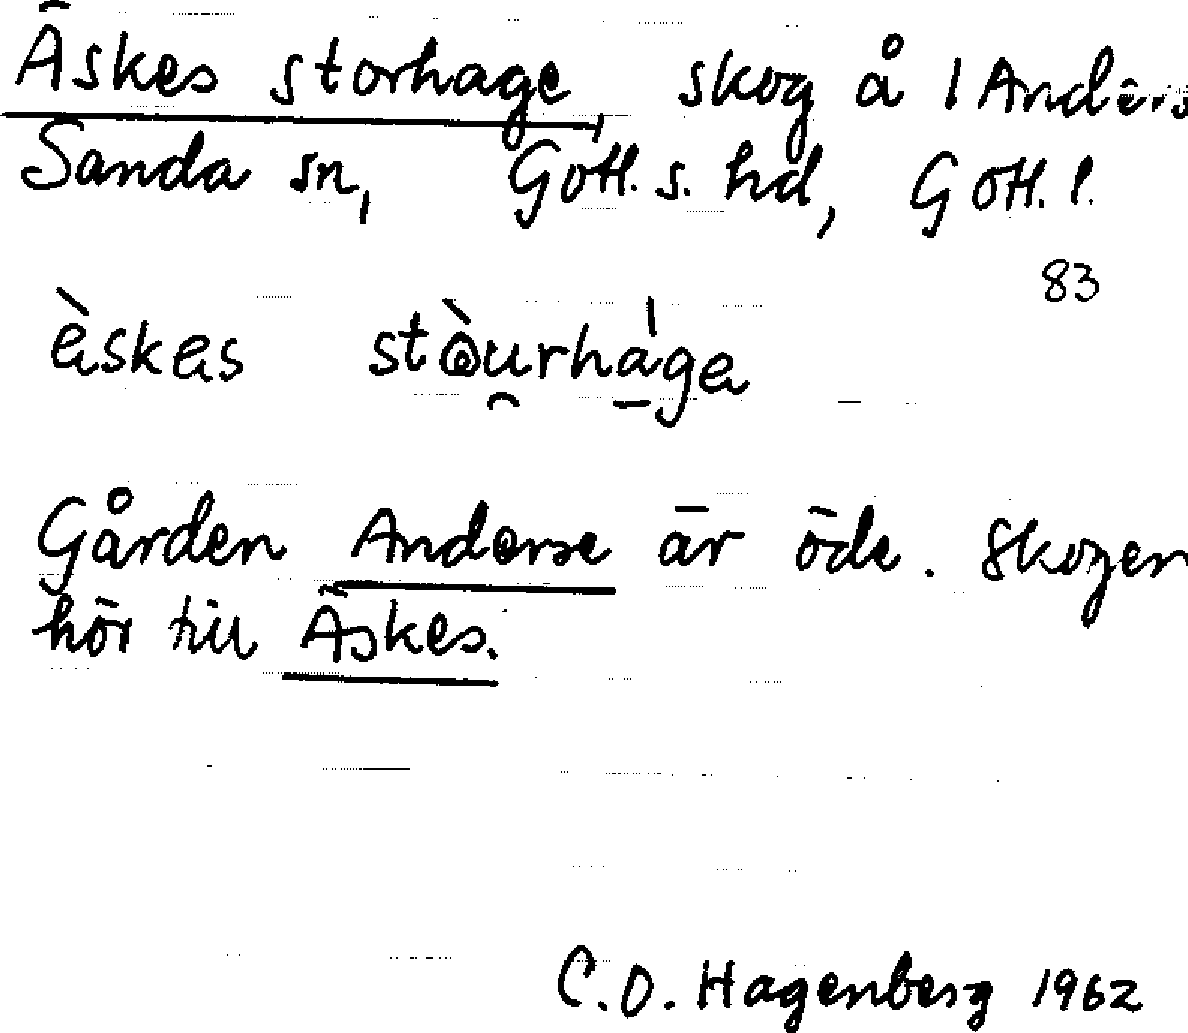 Äskes storhage, skog å 1 Anders
Sanda sn, Gotl. s. hd, Gotl. l.
83
Gården Anderse är öde. Skogen
hör till Äskes.
C.O. Hagenberg 1962